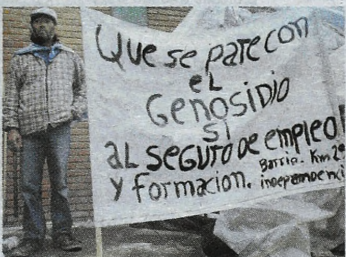 Que se pare con
el
Genosidio
si
al seguro de empleo
y formacion. Barrio. Km 2º